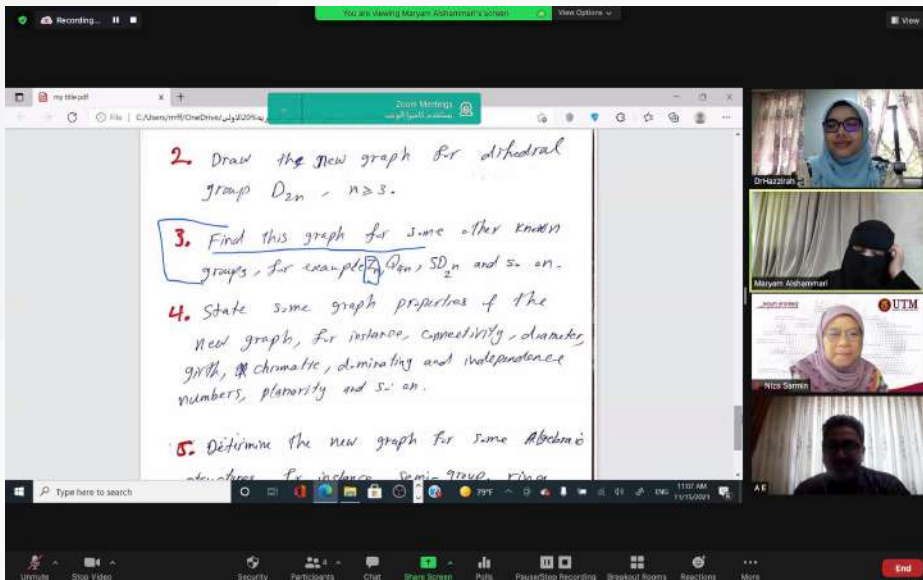 Recording...
You are viewing Maryam Alshammari's screen
View Options
View
my title.pdf
Zoom Meetings
File
2. Draw the new graph for dihedral
group D2n, n≥3.
3. Find this graph for some other known
groups, for example Zn, Q4n, SD2n and so on.
4. State some graph properties of the
new graph, for instance, connectivity, diameter,
girth, chromatic, dominating and independence
numbers, planarity and so on.
5. Determine the new graph for some Algebraic
structures for instance semi-group, rings
DrHazzirah
Maryam Alshammari
UTM
Niza Sarmin
A E
Type here to search
79°F
ENG
11:07 AM
11/15/2021
Unmute
Stop Video
Security
Participants
4
Chat
Share Screen
Polls
Pause/Stop Recording
Breakout Rooms
Reactions
More
End